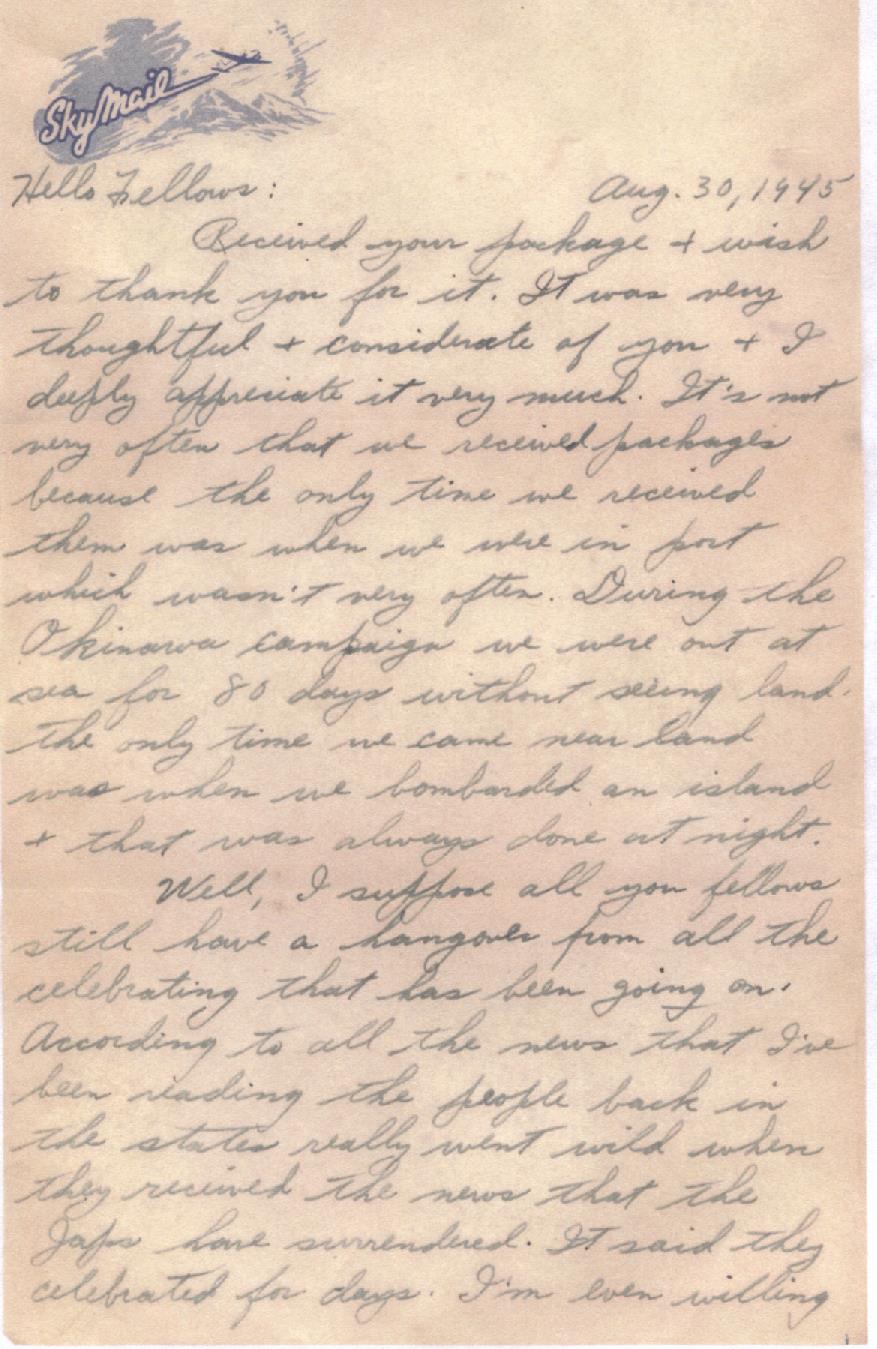 Sky Mail
Hello Fellows: Aug. 30, 1945
Received your package + wish
to thank you for it. It was very
thoughtful + considerate of you + I
deeply appreciate it very much. It's not
very often that we received packages
because the only time we received
them was when we were in port
which wasn't very often. During the
Okinawa campaign we were out at
sea for 80 days without seeing land.
the only time we came near land
was when we bombarded an island
+ that was always done at night.
Well, I suppose all you fellows
still have a hangover from all the
celebrating that has been going on.
According to all the news that I've
been reading the people back in
the states really went wild when
they received the news that the
Japs have surrendered. It said they
celebrated for days. I'm even willing